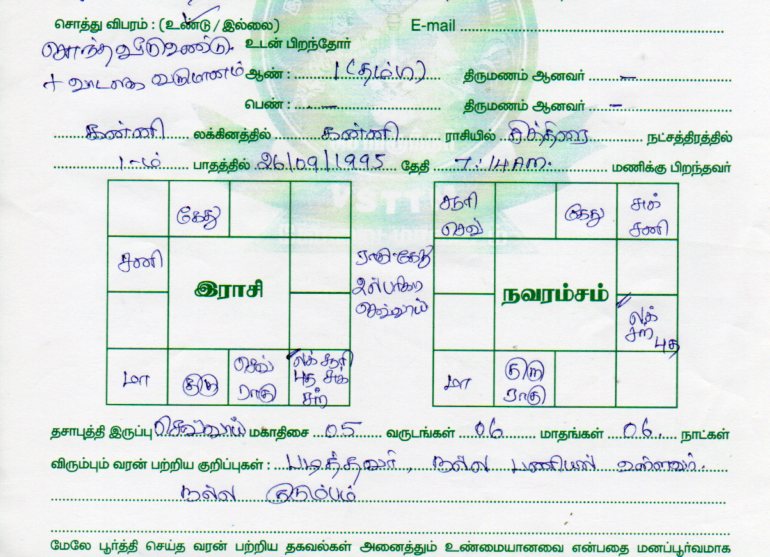 சொத்து விபரம் : (உண்டு / இல்லை) E-mail
சொந்த வீடு உண்டு. உடன் பிறந்தோர்
+ வாடகை வருமானம் ஆண் : 1 (தம்பி) திருமணம் ஆனவர் –
பெண் : – திருமணம் ஆனவர் –
கன்னி லக்கினத்தில் கன்னி ராசியில் சித்திரை நட்சத்திரத்தில்
1-ம் பாதத்தில் 26/09/1995 தேதி 7:14 AM. மணிக்கு பிறந்தவர்
கேது
சனி
இராசி
மா குரு செவ் ராகு லக் சூரி புத சுக் சந்
ராகு-கேது
செவ்வாய்
சூரி செவ் கேது சுக் சனி
நவரம்சம்
லக் சந் புத
மா குரு ராகு
தசாபுத்தி இருப்பு செவ்வாய் மகாதிசை 05 வருடங்கள் 06 மாதங்கள் 06 நாட்கள்
விரும்பும் வரன் பற்றிய குறிப்புகள் : படித்தவர், நல்ல பணியில் உள்ளவர்.
நல்ல குடும்பம்
மேலே பூர்த்தி செய்த வரன் பற்றிய தகவல்கள் அனைத்தும் உண்மையானவை என்பதை மனப்பூர்வமாக